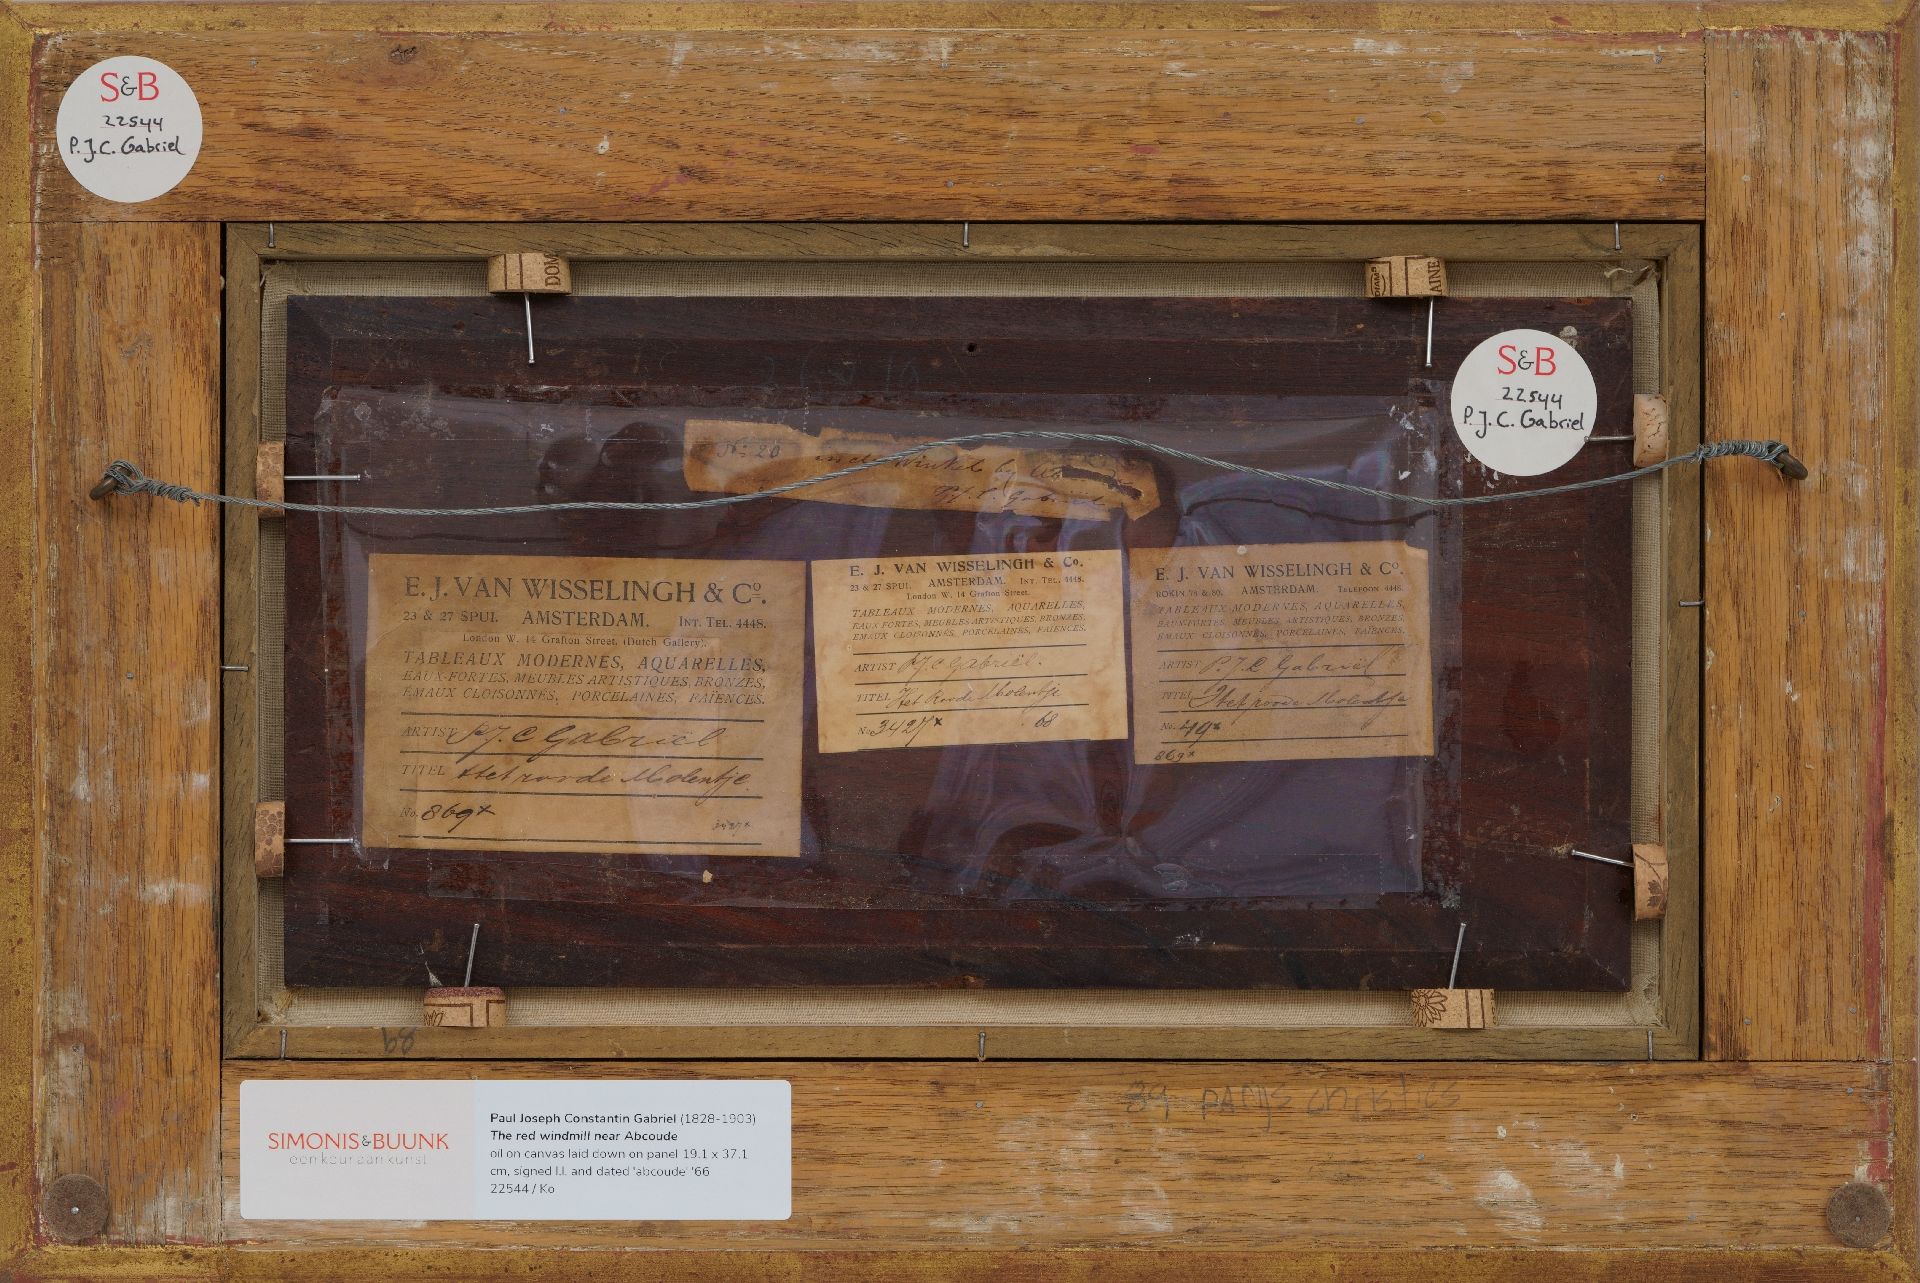 S&B
22544
P.J.C. Gabriel
DOM
AINE
S&B
22544
P.J.C. Gabriel
No. 20 in de Winkel by
P.J.C. Gabriel
E. J. VAN WISSELINGH & Co.
23 & 27 SPUI. AMSTERDAM. INT. TEL. 4448.
London W. 14 Grafton Street. (Dutch Gallery).
TABLEAUX MODERNES, AQUARELLES,
EAUX-FORTES, MEUBLES ARTISTIQUES, BRONZES,
EMAUX CLOISONNÉS, PORCELAINES, FAÏENCES.
ARTIST P.J.C Gabriël
TITEL Het roode Molentje.
No. 869x
3427x
E. J. VAN WISSELINGH & Co.
23 & 27 SPUI. AMSTERDAM. INT. TEL. 4448.
London W. 14 Grafton Street.
TABLEAUX MODERNES, AQUARELLES,
EAUX-FORTES, MEUBLES ARTISTIQUES, BRONZES,
EMAUX CLOISONNÉS, PORCELAINES, FAÏENCES.
ARTIST P.J.C Gabriël.
TITEL Het Roode Molentje
No. 3427x 68
E. J. VAN WISSELINGH & Co.
ROKIN 78 & 80. AMSTERDAM. TELEFOON 4448.
TABLEAUX MODERNES, AQUARELLES,
EAUX-FORTES, MEUBLES ARTISTIQUES, BRONZES,
EMAUX CLOISONNÉS, PORCELAINES, FAÏENCES.
ARTIST P.J.C Gabriël
TITEL Het roode Molentje
No. 49x
869x
68
SIMONIS&BUUNK
een keur aan kunst
Paul Joseph Constantin Gabriel (1828-1903)
The red windmill near Abcoude
oil on canvas laid down on panel 19.1 x 37.1
cm, signed l.l. and dated 'abcoude' '66
22544 / Ko